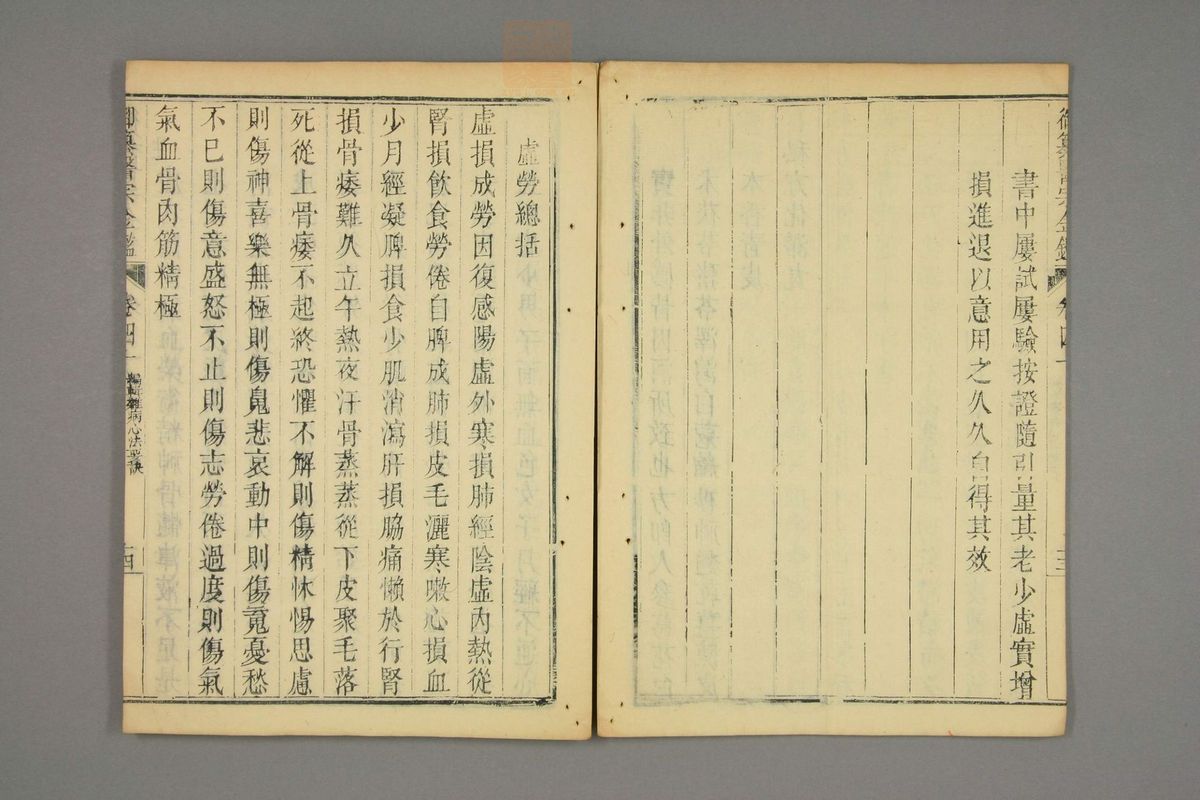 書中屢試屢驗按證隨引量其老少虛實增
損進退以意用之久久自得其效
虛勞總括
虛損成勞因復感陽虛外寒損肺經陰虛內熱從
腎損飲食勞倦自脾成肺損皮毛灑寒嗽心損血
少月經凝脾損食少肌消瀉肝損脇痛懶於行腎
損骨痿難久立午熱夜汗骨蒸蒸從下皮聚毛落
死從上骨痿不起終恐懼不解則傷精怵惕思慮
則傷神喜樂無極則傷魄悲哀動中則傷䰟憂愁
不已則傷意盛怒不止則傷志勞倦過度則傷氣
氣血骨肉筋精極
卷四一
編輯雜病心法要訣